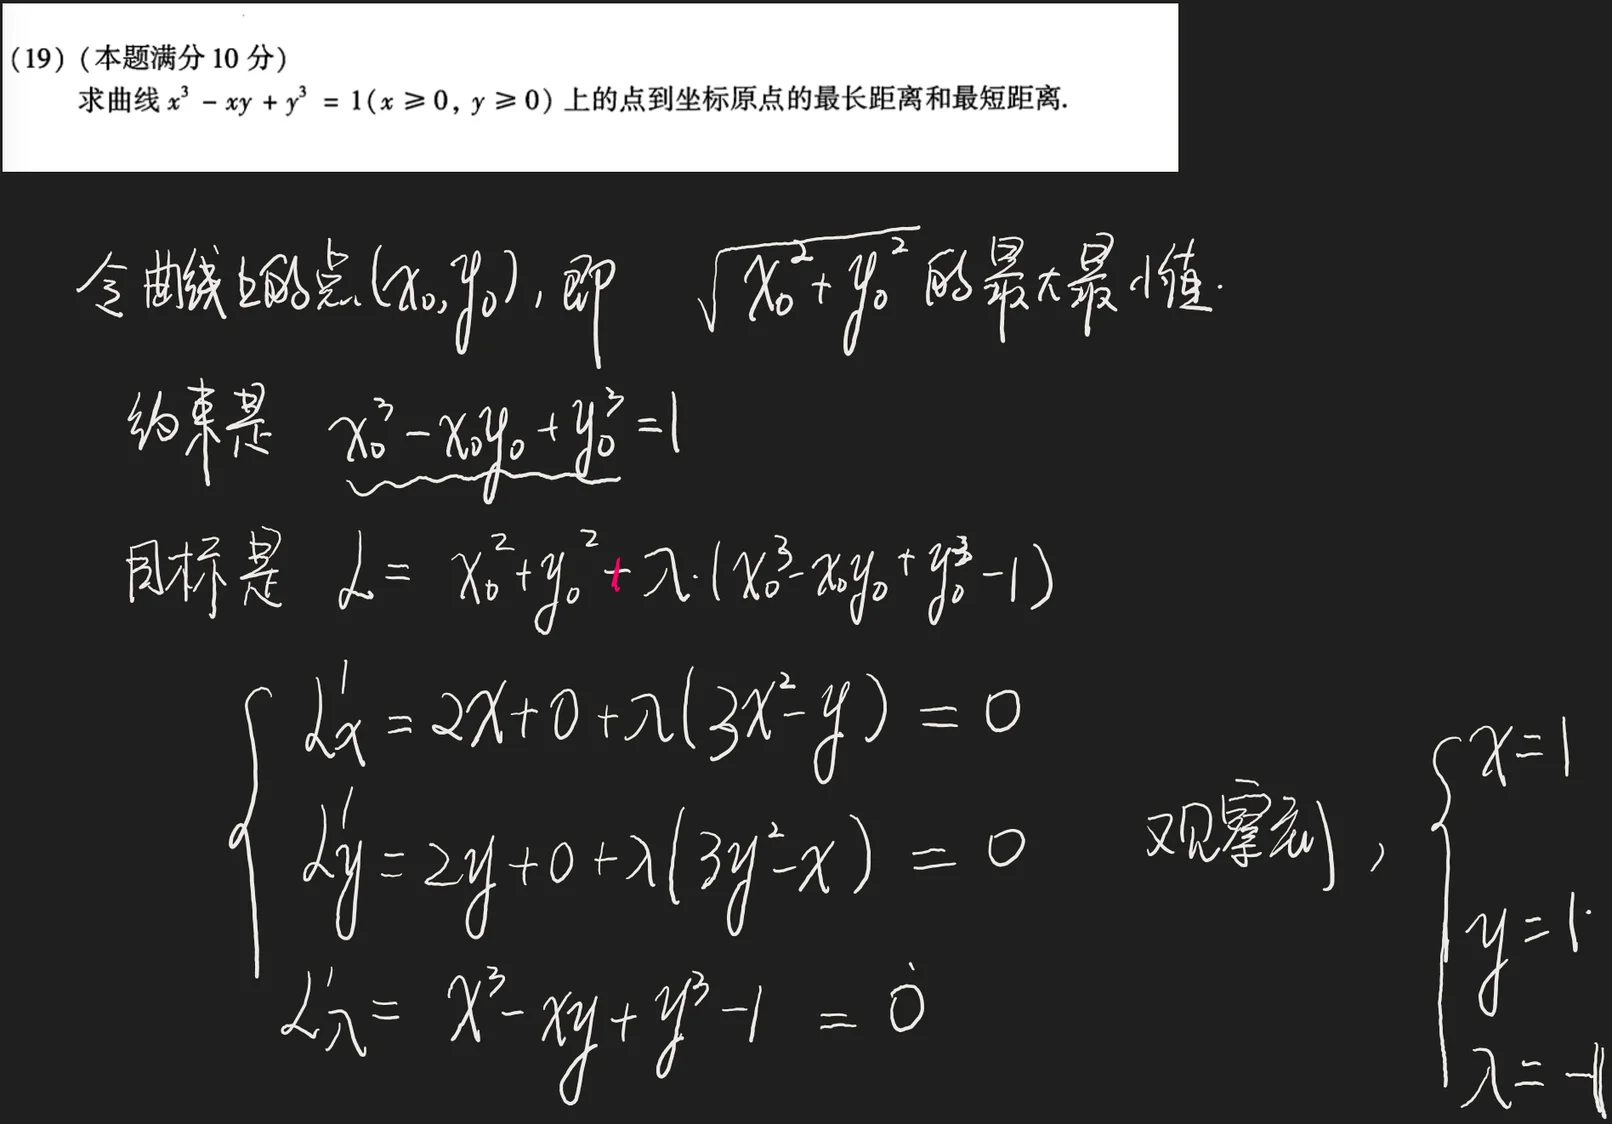 (19) (本题满分 10 分)
求曲线 x³ − xy + y³ = 1(x ⩾ 0, y ⩾ 0) 上的点到坐标原点的最长距离和最短距离.
令曲线上的点(x₀, y₀), 即 √(x₀² + y₀²) 的最大最小值.
约束是 x₀³ − x₀y₀ + y₀³ = 1
目标是 L = x₀² + y₀² + λ·(x₀³ − x₀y₀ + y₀³ − 1)
L'x = 2x + 0 + λ(3x² − y) = 0
L'y = 2y + 0 + λ(3y² − x) = 0
L'λ = x³ − xy + y³ − 1 = 0
观察到,
x = 1
y = 1.
λ = −1